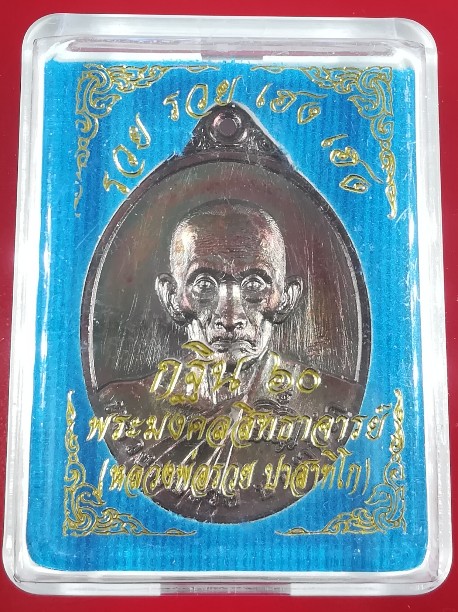 รวย รวย เฮง เฮง
กฐิน ๖๐
พระมงคลสิทธาจารย์
(หลวงพ่อรวย ปาสาทิโก)